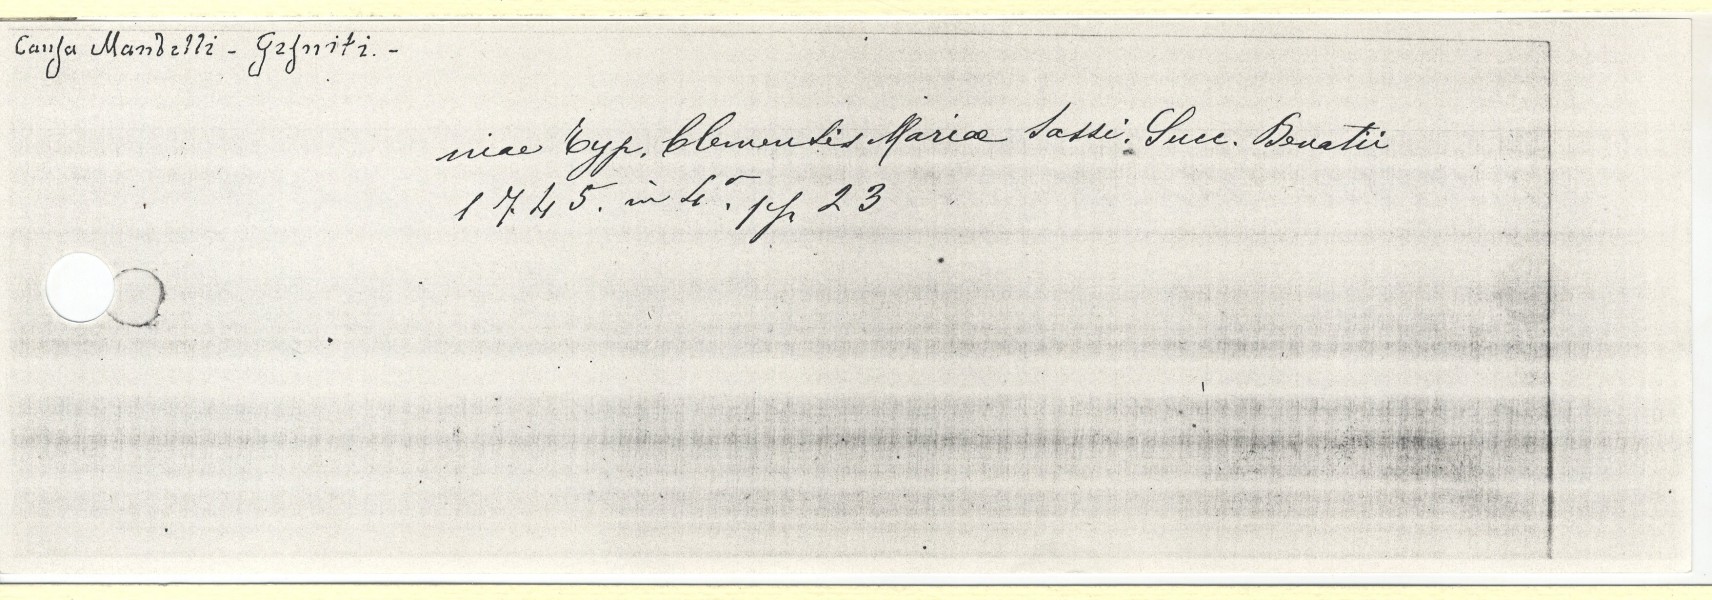 Causa Mandelli - Gesuiti. -
niae Typ. Clementis Mariæ Sassi. Succ. Benatii
1745. in 4°. pp 23